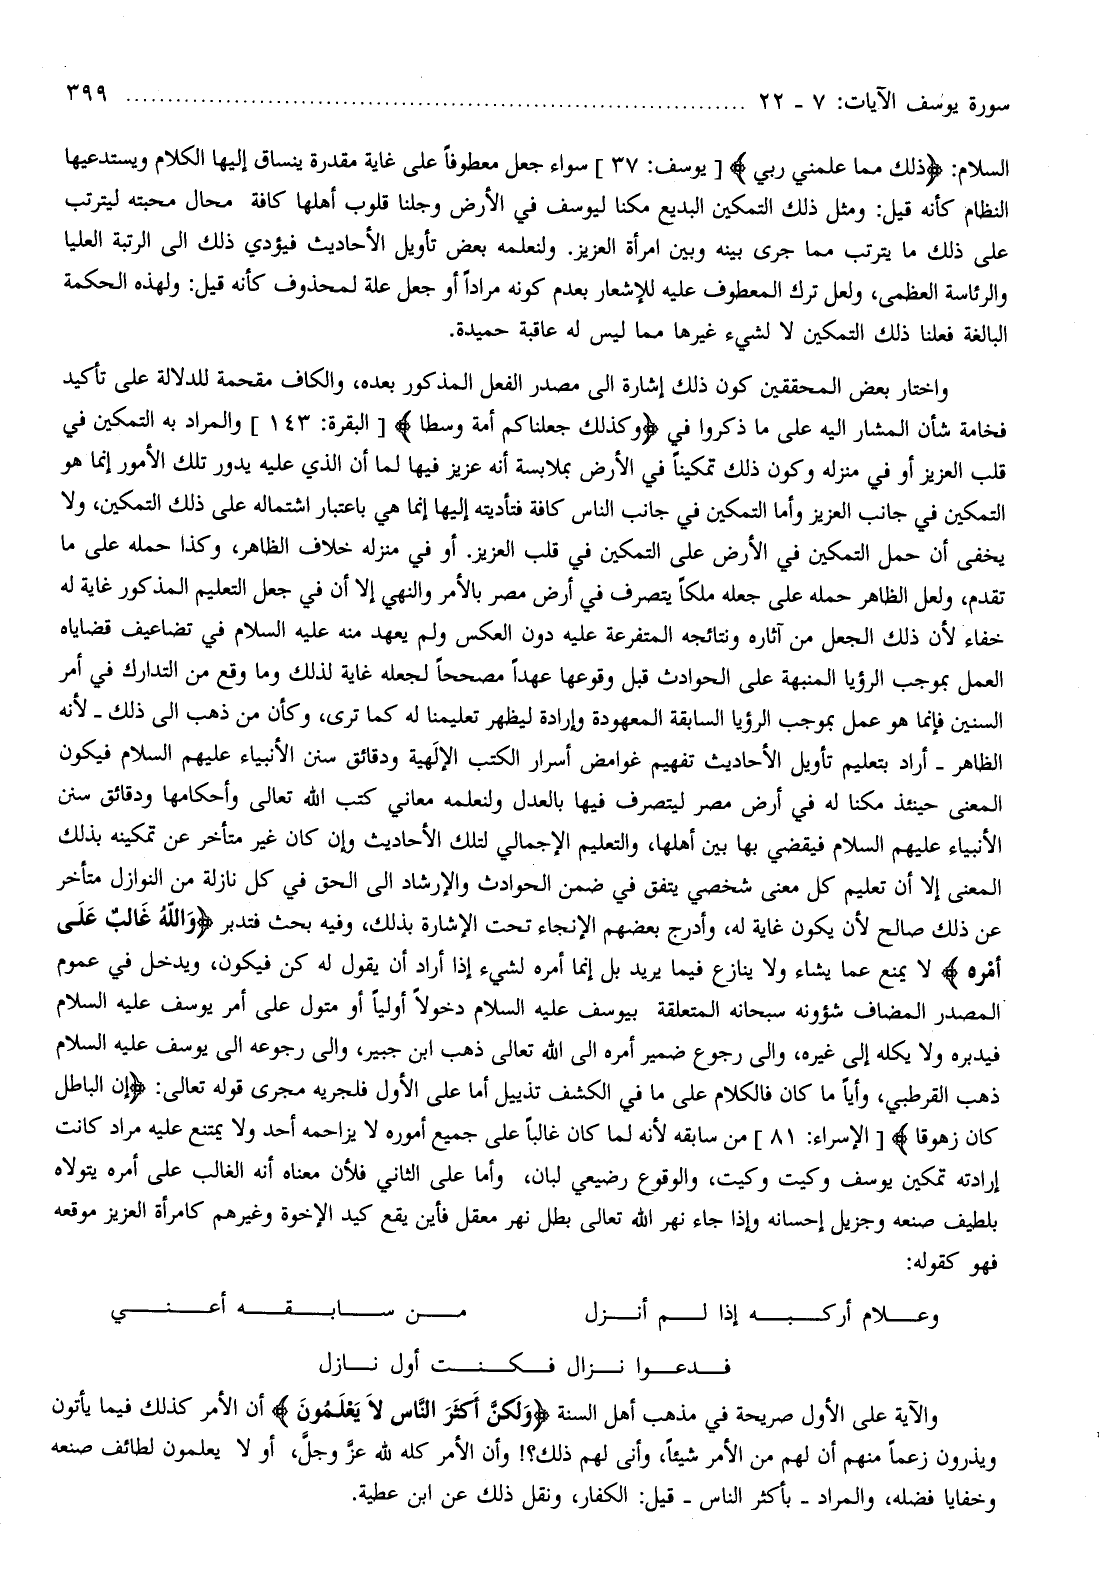 سورة يوسف الآيات: ٧ - ٢٢ ........................................................................................ ٣٩٩
السلام: ﴿ذلك مما علمني ربي﴾ [ يوسف: ٣٧ ] سواء جعل معطوفاً على غاية مقدرة ينساق إليها الكلام ويستدعيها
النظام كأنه قيل: ومثل ذلك التمكين البديع مكنا ليوسف في الأرض وجلنا قلوب أهلها كافة محال محبته ليترتب
على ذلك ما يترتب مما جرى بينه وبين امرأة العزيز. ولنعلمه بعض تأويل الأحاديث فيؤدي ذلك الى الرتبة العليا
والرئاسة العظمى، ولعل ترك المعطوف عليه للإشعار بعدم كونه مراداً أو جعل علة لمحذوف كأنه قيل: ولهذه الحكمة
البالغة فعلنا ذلك التمكين لا لشيء غيرها مما ليس له عاقبة حميدة.
واختار بعض المحققين كون ذلك إشارة الى مصدر الفعل المذكور بعده، والكاف مقحمة للدلالة على تأكيد
فخامة شأن المشار اليه على ما ذكروا في ﴿وكذلك جعلناكم أمة وسطا﴾ [ البقرة: ١٤٣ ] والمراد به التمكين في
قلب العزيز أو في منزله وكون ذلك تمكيناً في الأرض بملابسة أنه عزيز فيها لما أن الذي عليه يدور تلك الأمور إنما هو
التمكين في جانب العزيز وأما التمكين في جانب الناس كافة فتأديته إليها إنما هي باعتبار اشتماله على ذلك التمكين، ولا
يخفى أن حمل التمكين في الأرض على التمكين في قلب العزيز. أو في منزله خلاف الظاهر، وكذا حمله على ما
تقدم، ولعل الظاهر حمله على جعله ملكاً يتصرف في أرض مصر بالأمر والنهي إلا أن في جعل التعليم المذكور غاية له
خفاء لأن ذلك الجعل من آثاره ونتائجه المتفرعة عليه دون العكس ولم يعهد منه عليه السلام في تضاعيف قضاياه
العمل بموجب الرؤيا المنبهة على الحوادث قبل وقوعها عهداً مصححاً لجعله غاية لذلك وما وقع من التدارك في أمر
السنين فإنما هو عمل بموجب الرؤيا السابقة المعهودة وإرادة ليظهر تعليمنا له كما ترى، وكأن من ذهب الى ذلك - لأنه
الظاهر - أراد بتعليم تأويل الأحاديث تفهيم غوامض أسرار الكتب الإلهية ودقائق سنن الأنبياء عليهم السلام فيكون
المعنى حينئذ مكنا له في أرض مصر ليتصرف فيها بالعدل ولنعلمه معاني كتب الله تعالى وأحكامها ودقائق سنن
الأنبياء عليهم السلام فيقضي بها بين أهلها، والتعليم الإجمالي لتلك الأحاديث وإن كان غير متأخر عن تمكينه بذلك
المعنى إلا أن تعليم كل معنى شخصي يتفق في ضمن الحوادث والإرشاد الى الحق في كل نازلة من النوازل متأخر
عن ذلك صالح لأن يكون غاية له، وأدرج بعضهم الإنجاء تحت الإشارة بذلك، وفيه بحث فتدبر ﴿وَاللّهُ غَالبٌ عَلَى
أمْره﴾ لا يمنع عما يشاء ولا ينازع فيما يريد بل إنما أمره لشيء إذا أراد أن يقول له كن فيكون، ويدخل في عموم
المصدر المضاف شؤونه سبحانه المتعلقة بيوسف عليه السلام دخولاً أولياً أو متول على أمر يوسف عليه السلام
فيدبره ولا يكله إلى غيره، والى رجوع ضمير أمره الى الله تعالى ذهب ابن جبير، والى رجوعه الى يوسف عليه السلام
ذهب القرطبي، وأياً ما كان فالكلام على ما في الكشف تذييل أما على الأول فلجريه مجرى قوله تعالى: ﴿إن الباطل
كان زهوقا﴾ [ الإسراء: ٨١ ] من سابقه لأنه لما كان غالباً على جميع أموره لا يزاحمه أحد ولا يمتنع عليه مراد كانت
إرادته تمكين يوسف وكيت وكيت، والوقوع رضيعي لبان، وأما على الثاني فلأن معناه أنه الغالب على أمره يتولاه
بلطيف صنعه وجزيل إحسانه وإذا جاء نهر الله تعالى بطل نهر معقل فأين يقع كيد الإخوة وغيرهم كامرأة العزيز موقعه
فهو كقوله:
وعلام أركبه إذا لم أنزل من سابقه أعني
فدعوا نزال فكنت أول نازل
والآية على الأول صريحة في مذهب أهل السنة ﴿وَلَكنَّ أَكثَرَ النَّاس لاَ يَعْلَمُونَ﴾ أن الأمر كذلك فيما يأتون
ويذرون زعماً منهم أن لهم من الأمر شيئاً، وأنى لهم ذلك؟! وأن الأمر كله لله عزَّ وجلَّ، أو لا يعلمون لطائف صنعه
وخفايا فضله، والمراد - بأكثر الناس - قيل: الكفار، ونقل ذلك عن ابن عطية.